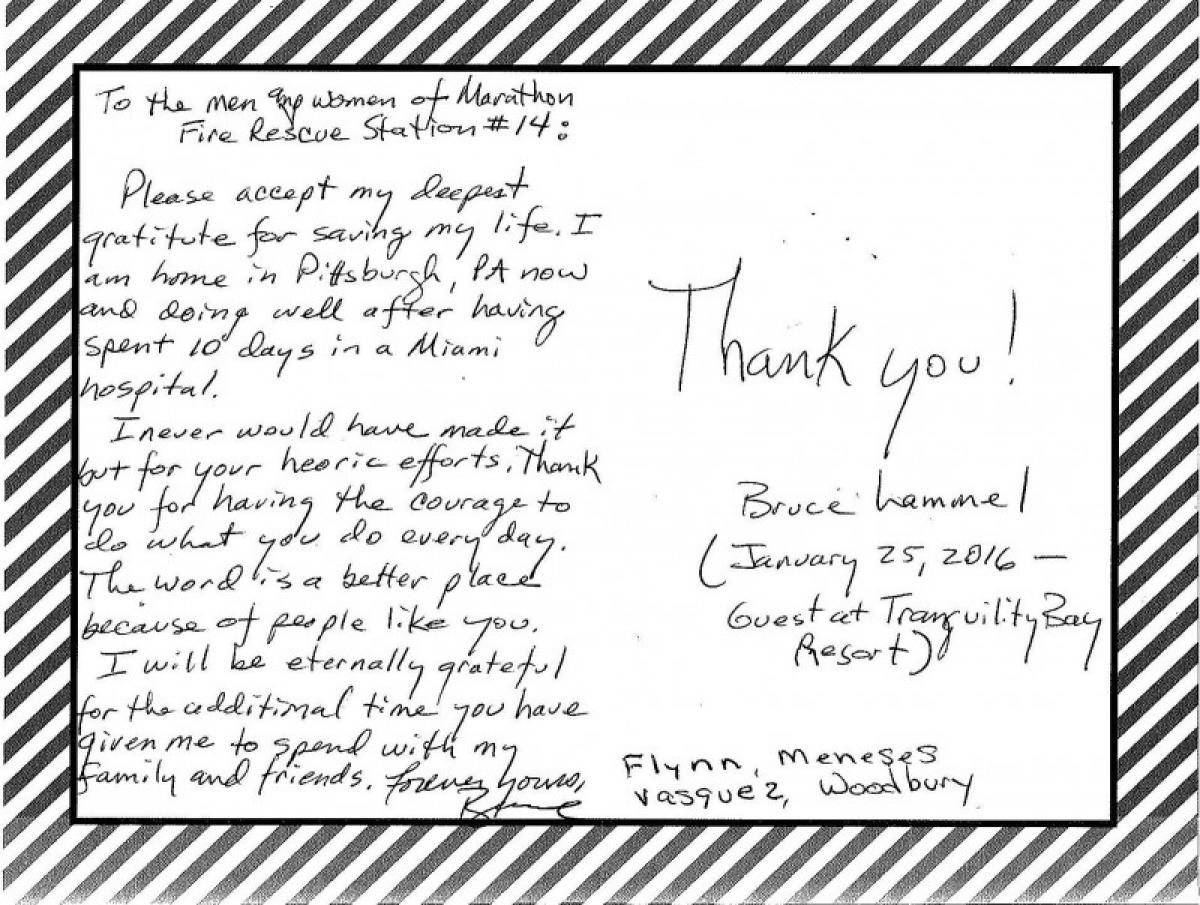 To the men and women of Marathon
Fire Rescue Station #14:
Please accept my deepest
gratitute for saving my life. I
am home in Pittsburgh, PA now
and doing well after having
spent 10 days in a Miami
hospital.
I never would have made it
but for your heoric efforts. Thank
you for having the courage to
do what you do every day.
The word is a better place
because of people like you.
I will be eternally grateful
for the additional time you have
given me to spend with my
family and friends. forever yours,
Bruce
Thank you!
Bruce Lammel
(January 25, 2016 —
Guest at Tranquility Bay
Resort)
Flynn, Meneses
Vasquez, Woodbury